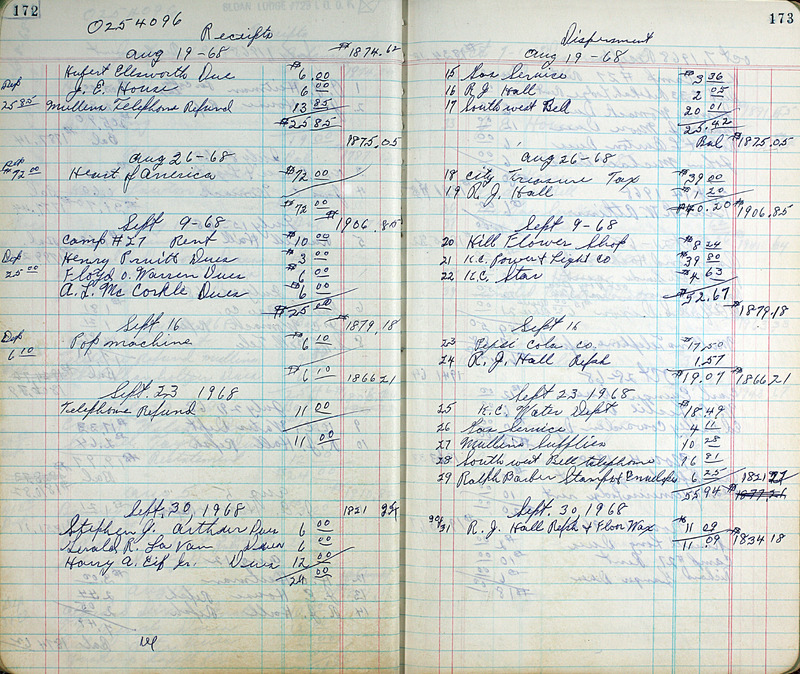 172
0254096
Receipts
Aug 19-68 $1874.62
Hufert Ellsworth Due $6.00
Dep J. E. House 6.00
25 85 Mullens Telephone Refund 13 85
$25 85
1875.05
Aug 26-68
Dep $72 00 Heart of America $72 00
$72 00
Sept 9-68 $1906.85
Camp #27 Rent $10 00
Dep Henry Pruitt Dues $3 00
25 00 Floyd O. Warren Dues $6 00
A. L. Mc Corkle Dues 6 00
$25 00
Sept 16 $1879.18
Dep 6 10 Pop machine $6 10
$6 10 1866 21
Sept. 23 1968
Telephone Refund 11 00
11 00
Sept, 30, 1968 1821
Stephen J. Arthur Dues 6 00
Gerald R. La Van Dues 6 00
Harry A. Eif Jr. Dues 12 00
24 00
173
Dispersment
Aug 19-68
15 Gas Service $3 36
16 R J Hall 2 05
17 South west Bell 20 01
25.42
Bal $1875.05
Aug 26-68
18 City Treasure Tax $39 00
19 R. J. Hall $1 20
$40.20 $1906.85
Sept 9-68
20 Hill Flower Shop $8 24
21 K.C. Power & Light Co 39 80
22 K.C. Star $4 63
$52.67
$1879.18
Sept 16
23 Pepsi Cola Co. $17.50
24 R. J. Hall Refsh 1.57
$19.07 $1866 21
Sept 23 1968
25 K.C. Water Dept $18 49
26 Gas Service 4 11
27 Mullens Supplies 10 28
28 South west Bell telephone 16 81
29 Ralph Barber Stamps & Envelops 6 25 1821 27
55 94
Sept. 30, 1968
30/31 R. J. Hall Refsh & Floor Wax $11 09
11.09 $1834 18